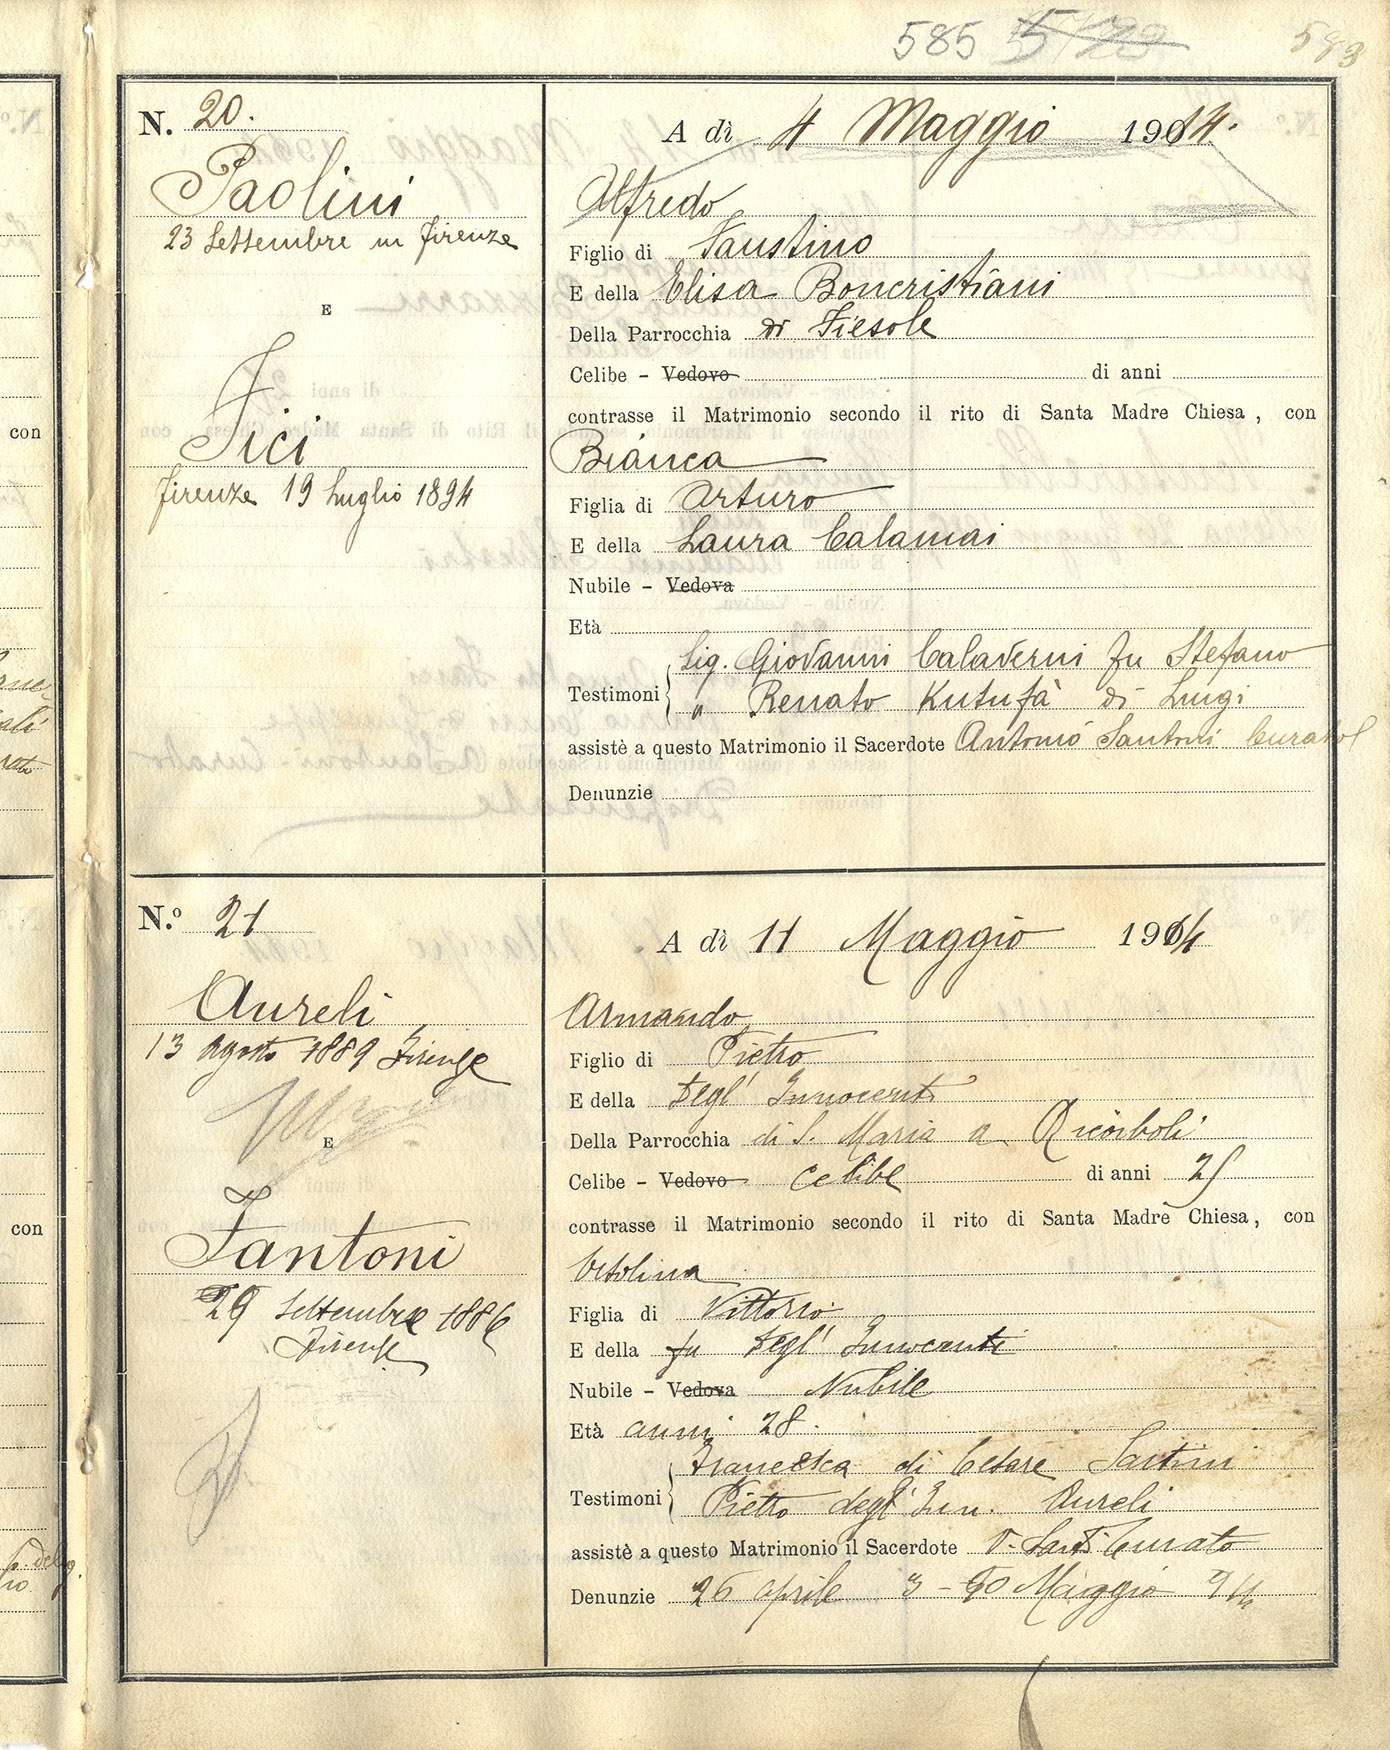 585
583
N. 20.
Paolini
23 Settembre in Firenze
E
Fici
Firenze 19 Luglio 1894
A dì 4 Maggio 1914.
Alfredo
Figlio di Faustino
E della Elisa Boncristiani
Della Parrocchia di Fiesole
Celibe - Vedovo di anni
contrasse il Matrimonio secondo il rito di Santa Madre Chiesa, con
Bianca
Figlia di Arturo
E della Laura Calamai
Nubile - Vedova
Età
Sig. Giovanni Calaverni fu Stefano
Testimoni
" Renato Kutufà di Luigi
assistè a questo Matrimonio il Sacerdote Antonio Santoni
Denunzie
N.º 21
Aureli
13 Agosto 1889 Firenze
E
Fantoni
29 Settembre 1886
Firenze
A dì 11 Maggio 1914
Armando
Figlio di Pietro
E della Degl' Innocenti
Della Parrocchia di S. Maria a Ricorboli
Celibe - Vedovo Celibe di anni 25
contrasse il Matrimonio secondo il rito di Santa Madre Chiesa, con
Figlia di Vittorio
E della fu Degl' Innocenti
Nubile - Vedova Nubile
Età anni 28.
di Cesare
Testimoni
Pietro degl' Inn. Aureli
assistè a questo Matrimonio il Sacerdote Curato
Denunzie 26 aprile 3 - 10 Maggio
con
con